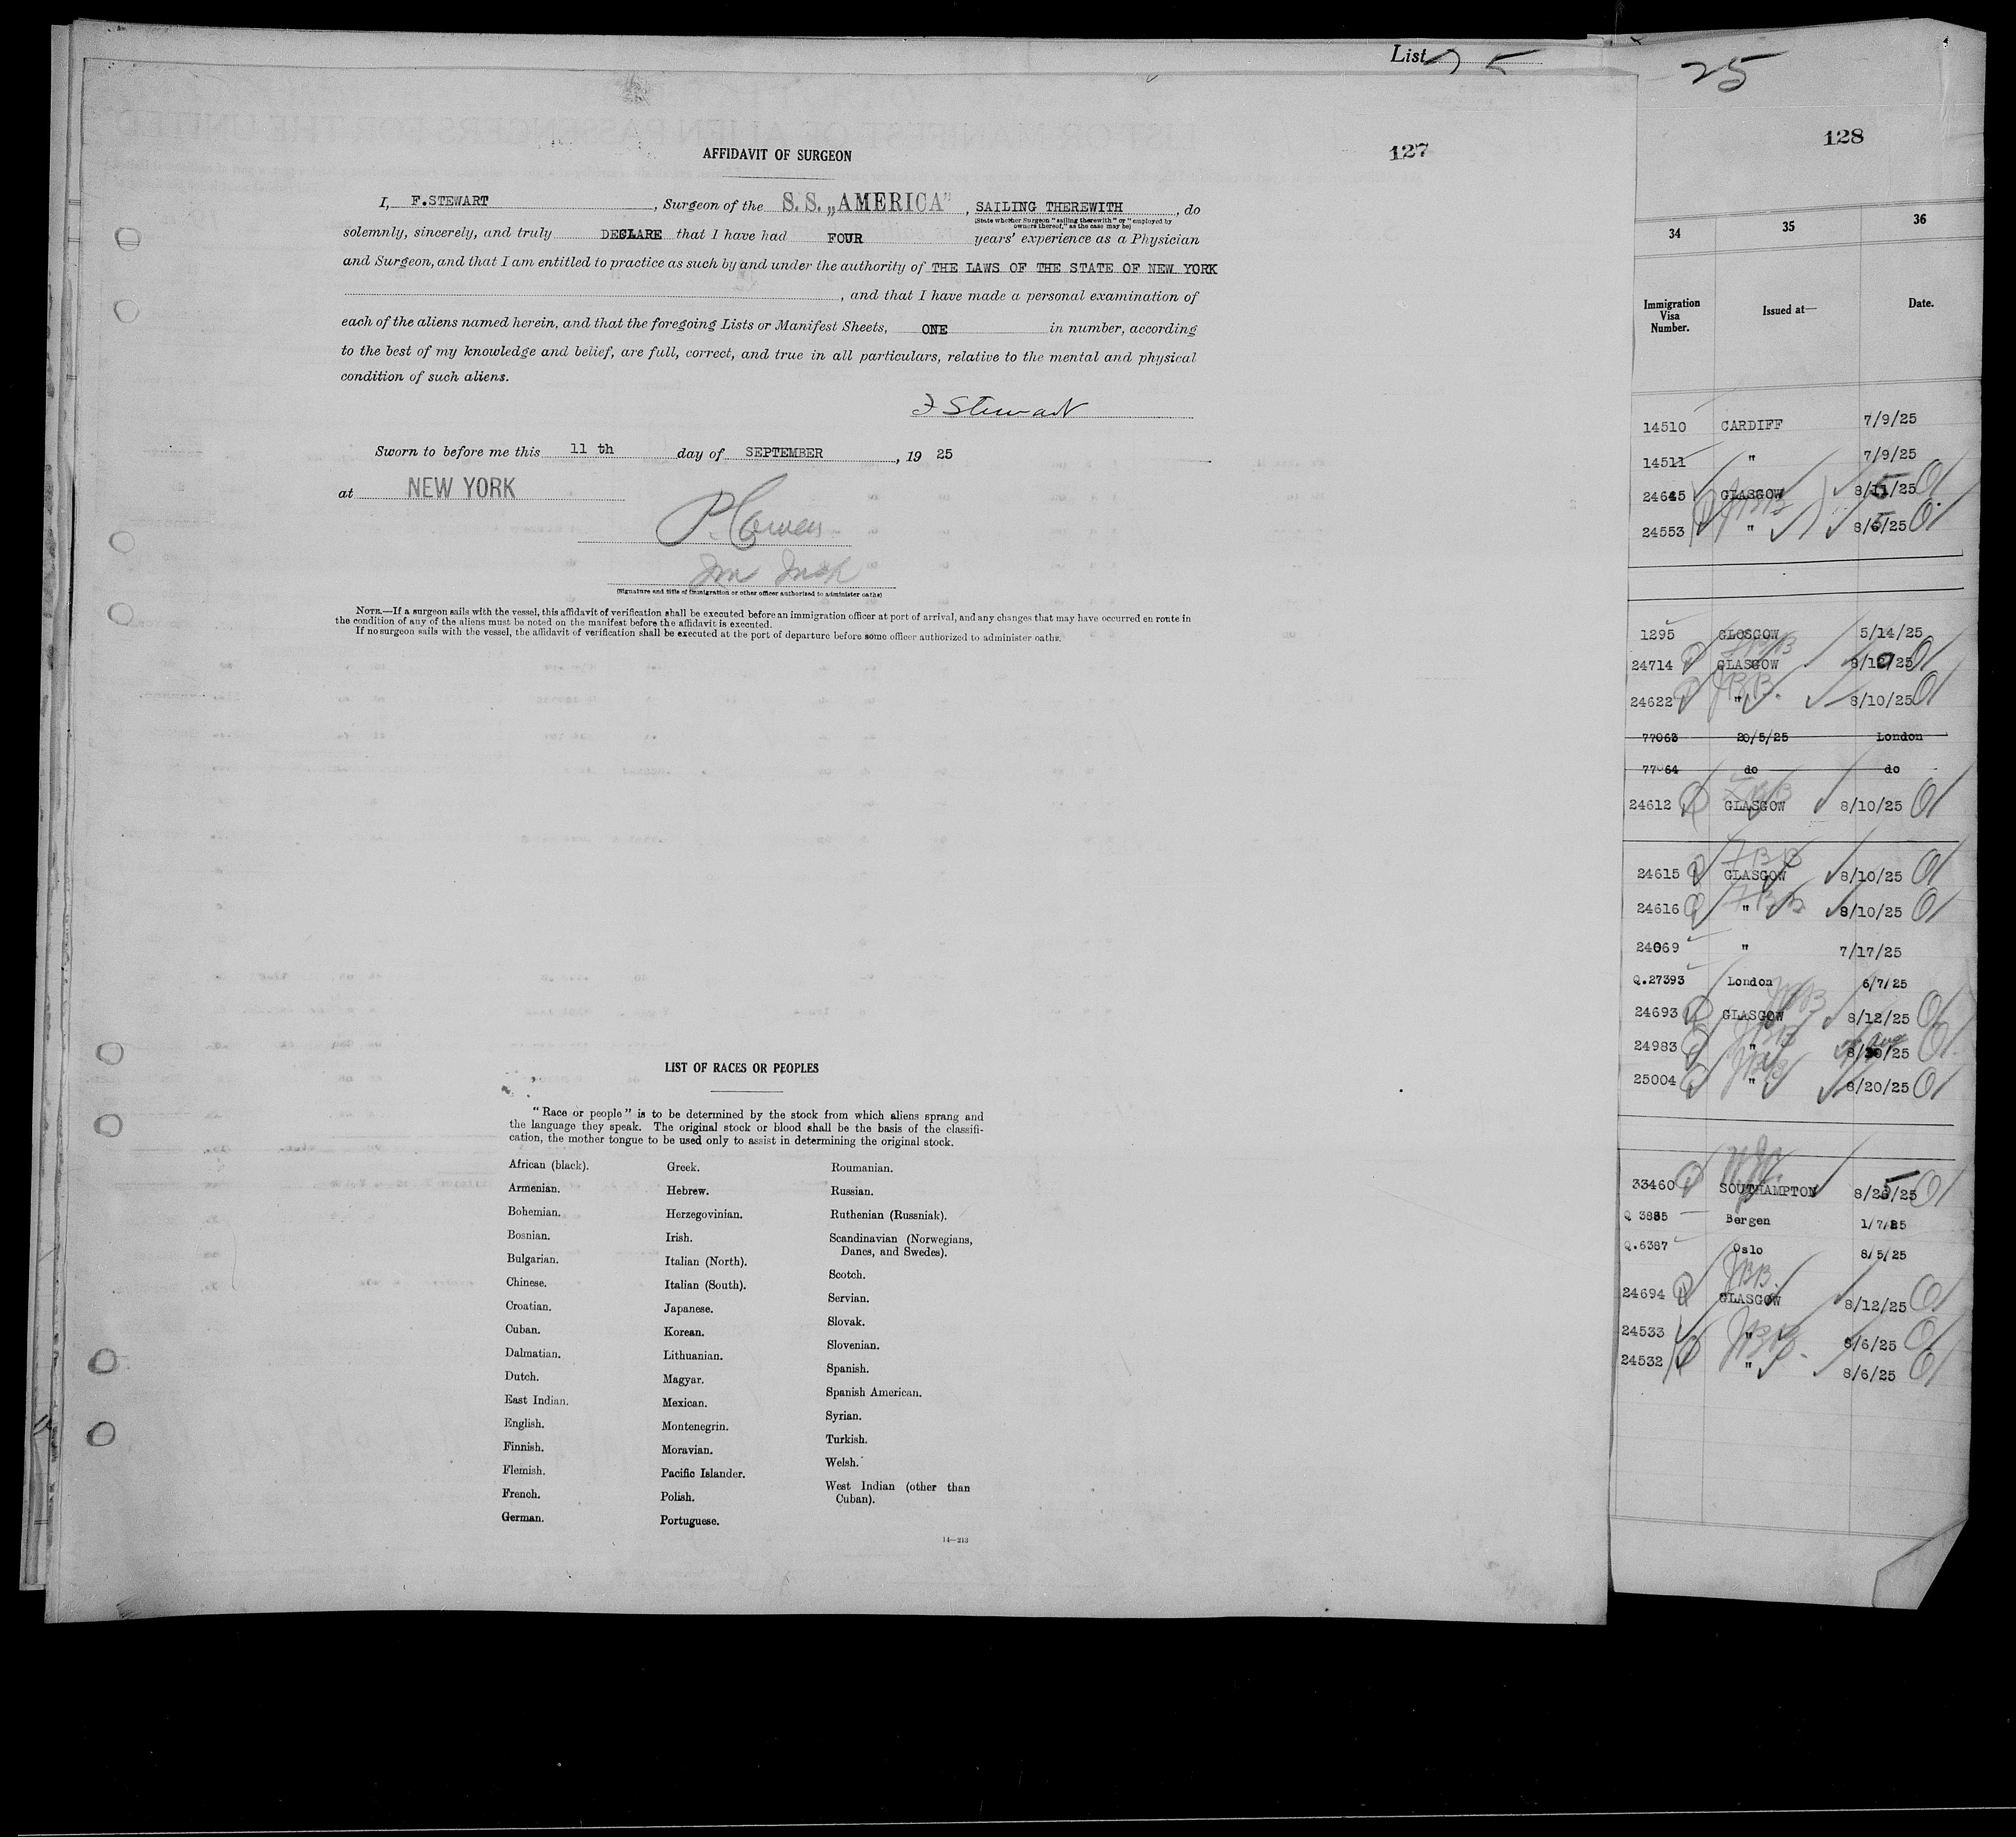 List 25
25
127
128
AFFIDAVIT OF SURGEON
I, F.STEWART, Surgeon of the S. S. „AMERICA", SAILING THEREWITH, do
(State whether Surgeon "sailing therewith" or "employed by
owners thereof," as the case may be)
solemnly, sincerely, and truly DECLARE that I have had FOUR years' experience as a Physician
and Surgeon, and that I am entitled to practice as such by and under the authority of THE LAWS OF THE STATE OF NEW YORK
, and that I have made a personal examination of
each of the aliens named herein, and that the foregoing Lists or Manifest Sheets, ONE in number, according
to the best of my knowledge and belief, are full, correct, and true in all particulars, relative to the mental and physical
condition of such aliens.
F Stewart
Sworn to before me this 11 th day of SEPTEMBER, 19 25
at NEW YORK
(Signature and title of immigration or other officer authorized to administer oaths)
NOTE.—If a surgeon sails with the vessel, this affidavit of verification shall be executed before an immigration officer at port of arrival, and any changes that may have occurred en route in
the condition of any of the aliens must be noted on the manifest before the affidavit is executed.
If no surgeon sails with the vessel, the affidavit of verification shall be executed at the port of departure before some officer authorized to administer oaths.
LIST OF RACES OR PEOPLES
"Race or people" is to be determined by the stock from which aliens sprang and
the language they speak. The original stock or blood shall be the basis of the classifi-
cation, the mother tongue to be used only to assist in determining the original stock.
African (black).
Armenian.
Bohemian.
Bosnian.
Bulgarian.
Chinese.
Croatian.
Cuban.
Dalmatian.
Dutch.
East Indian.
English.
Finnish.
Flemish.
French.
German.
Greek.
Hebrew.
Herzegovinian.
Irish.
Italian (North).
Italian (South).
Japanese.
Korean.
Lithuanian.
Magyar.
Mexican.
Montenegrin.
Moravian.
Pacific Islander.
Polish.
Portuguese.
Roumanian.
Russian.
Ruthenian (Russniak).
Scandinavian (Norwegians,
Danes, and Swedes).
Scotch.
Servian.
Slovak.
Slovenian.
Spanish.
Spanish American.
Syrian.
Turkish.
Welsh.
West Indian (other than
Cuban).
14—213
34 35 36
Immigration
Visa
Number.
Issued at—
Date.
14510 CARDIFF 7/9/25
14511 " 7/9/25
24645 GLASGOW 8/11/25
24553 " 8/6/25
1295 GLOSGOW 5/14/25
24714 GLASGOW 8/12/25
24622 " 8/10/25
77063 20/5/25 London
77064 do do
24612 GLASGOW 8/10/25
24615 GLASGOW 8/10/25
24616 " 8/10/25
24069 " 7/17/25
Q.27393 London 6/7/25
24693 GLASGOW 8/12/25
24983 " 8/20/25
25004 " 8/20/25
33460 SOUTHAMPTON 8/25/25
Q 3885 Bergen 1/7/25
Q.6387 Oslo 8/5/25
24694 GLASGOW 8/12/25
24533 " 8/6/25
24532 " 8/6/25